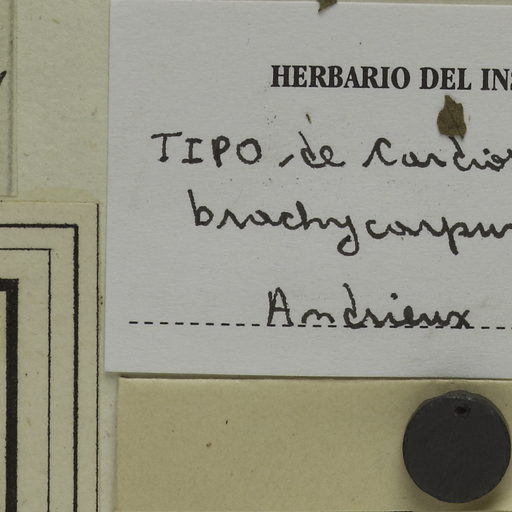 HERBARIO DEL INS
TIPO de Cardio
brachycarpu
Andrieux